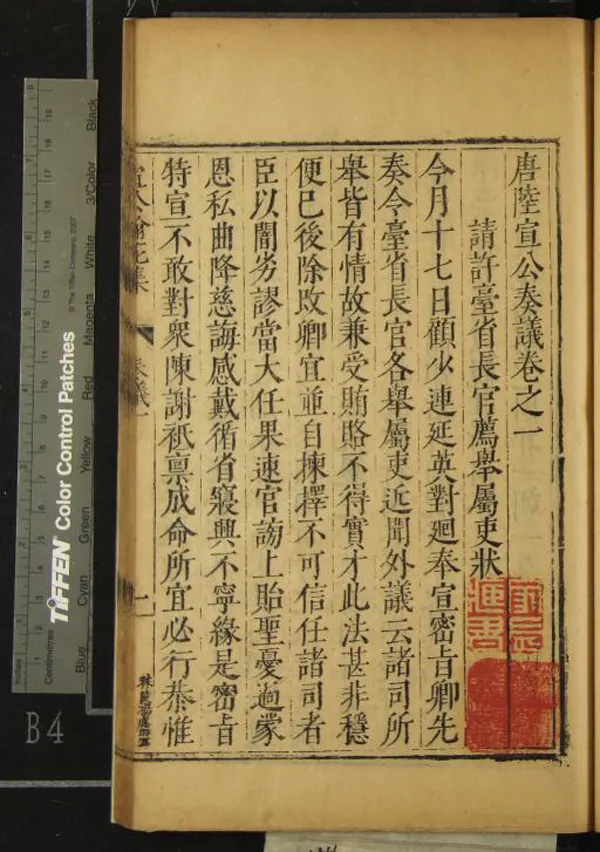 唐陸宣公奏議卷之一
請許臺省長官薦舉屬吏狀
今月十七日顧少連延英對廻奉宣密旨卿先
奏令臺省長官各舉屬吏近聞外議云諸司所
舉皆有情故兼受賄賂不得實才此法甚非穩
便已後除改卿宜並自揀擇不可信任諸司者
臣以闇劣謬當大任果速官謗上貽聖憂過蒙
恩私曲降慈誨感戴循省寢興不寧緣是密旨
特宣不敢對衆陳謝祗稟成命所宜必行恭惟
宣公翰苑集
奏議一
一
B4
TIFFEN Color Control Patches
© The Tiffen Company, 2007
Blue Cyan Green Yellow Red Magenta White 3/Color Black
Inches
Centimetres